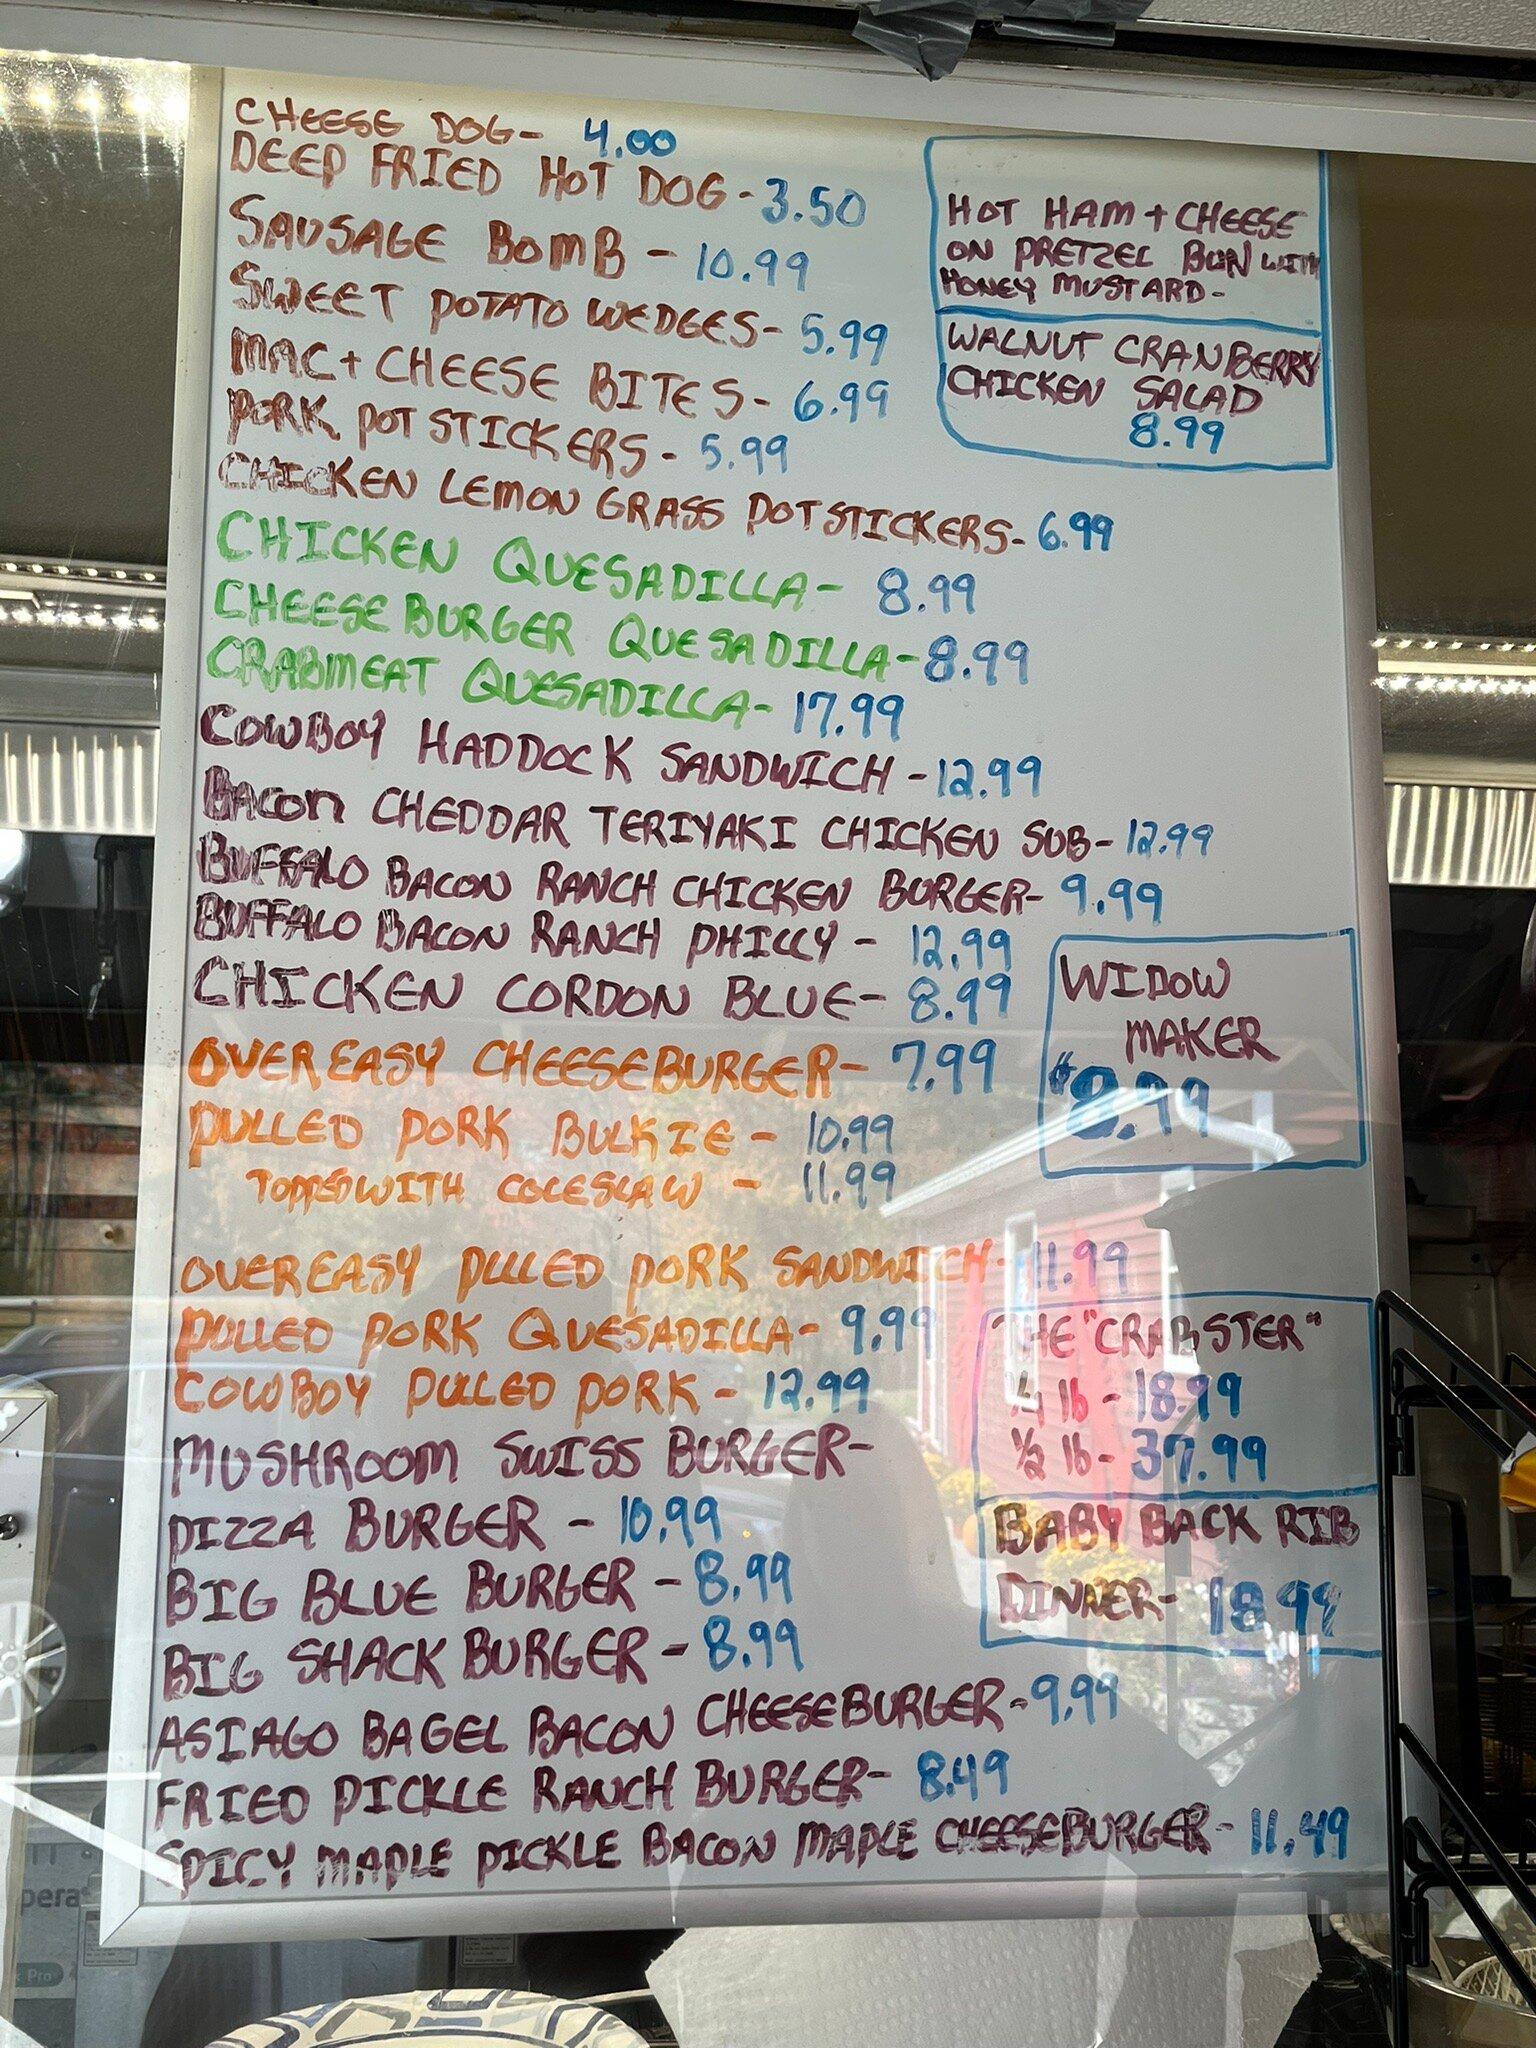 CHEESE DOG- 4.00
DEEP FRIED HOT DOG- 3.50
SAUSAGE BOMB - 10.99
SWEET POTATO WEDGES- 5.99
MAC + CHEESE BITES- 6.99
PORK POTSTICKERS- 5.99
CHICKEN LEMON GRASS POTSTICKERS- 6.99
CHICKEN QUESADILLA- 8.99
CHEESEBURGER QUESADILLA- 8.99
CRABMEAT QUESADILLA- 17.99
COWBOY HADDOCK SANDWICH - 12.99
BACON CHEDDAR TERIYAKI CHICKEN SUB- 12.99
BUFFALO BACON RANCH CHICKEN BURGER- 9.99
BUFFALO BACON RANCH PHILLY - 12.99
CHICKEN CORDON BLUE- 8.99
OVEREASY CHEESEBURGER- 7.99
PULLED PORK BULKIE - 10.99
TOPPED WITH COLESLAW - 11.99
OVEREASY PULLED PORK SANDWICH- 11.99
PULLED PORK QUESADILLA- 9.99
COWBOY PULLED PORK - 12.99
MUSHROOM SWISS BURGER-
PIZZA BURGER - 10.99
BIG BLUE BURGER - 8.99
BIG SHACK BURGER - 8.99
ASIAGO BAGEL BACON CHEESEBURGER- 9.99
FRIED PICKLE RANCH BURGER- 8.49
SPICY MAPLE PICKLE BACON MAPLE CHEESEBURGER- 11.49
HOT HAM + CHEESE
ON PRETZEL BUN WITH
HONEY MUSTARD-
WALNUT CRANBERRY
CHICKEN SALAD
8.99
WIDOW
MAKER
$8.99
THE "CRABSTER"
1/4 lb - 18.99
1/2 lb - 37.99
BABY BACK RIB
DINNER- 18.99
Pro